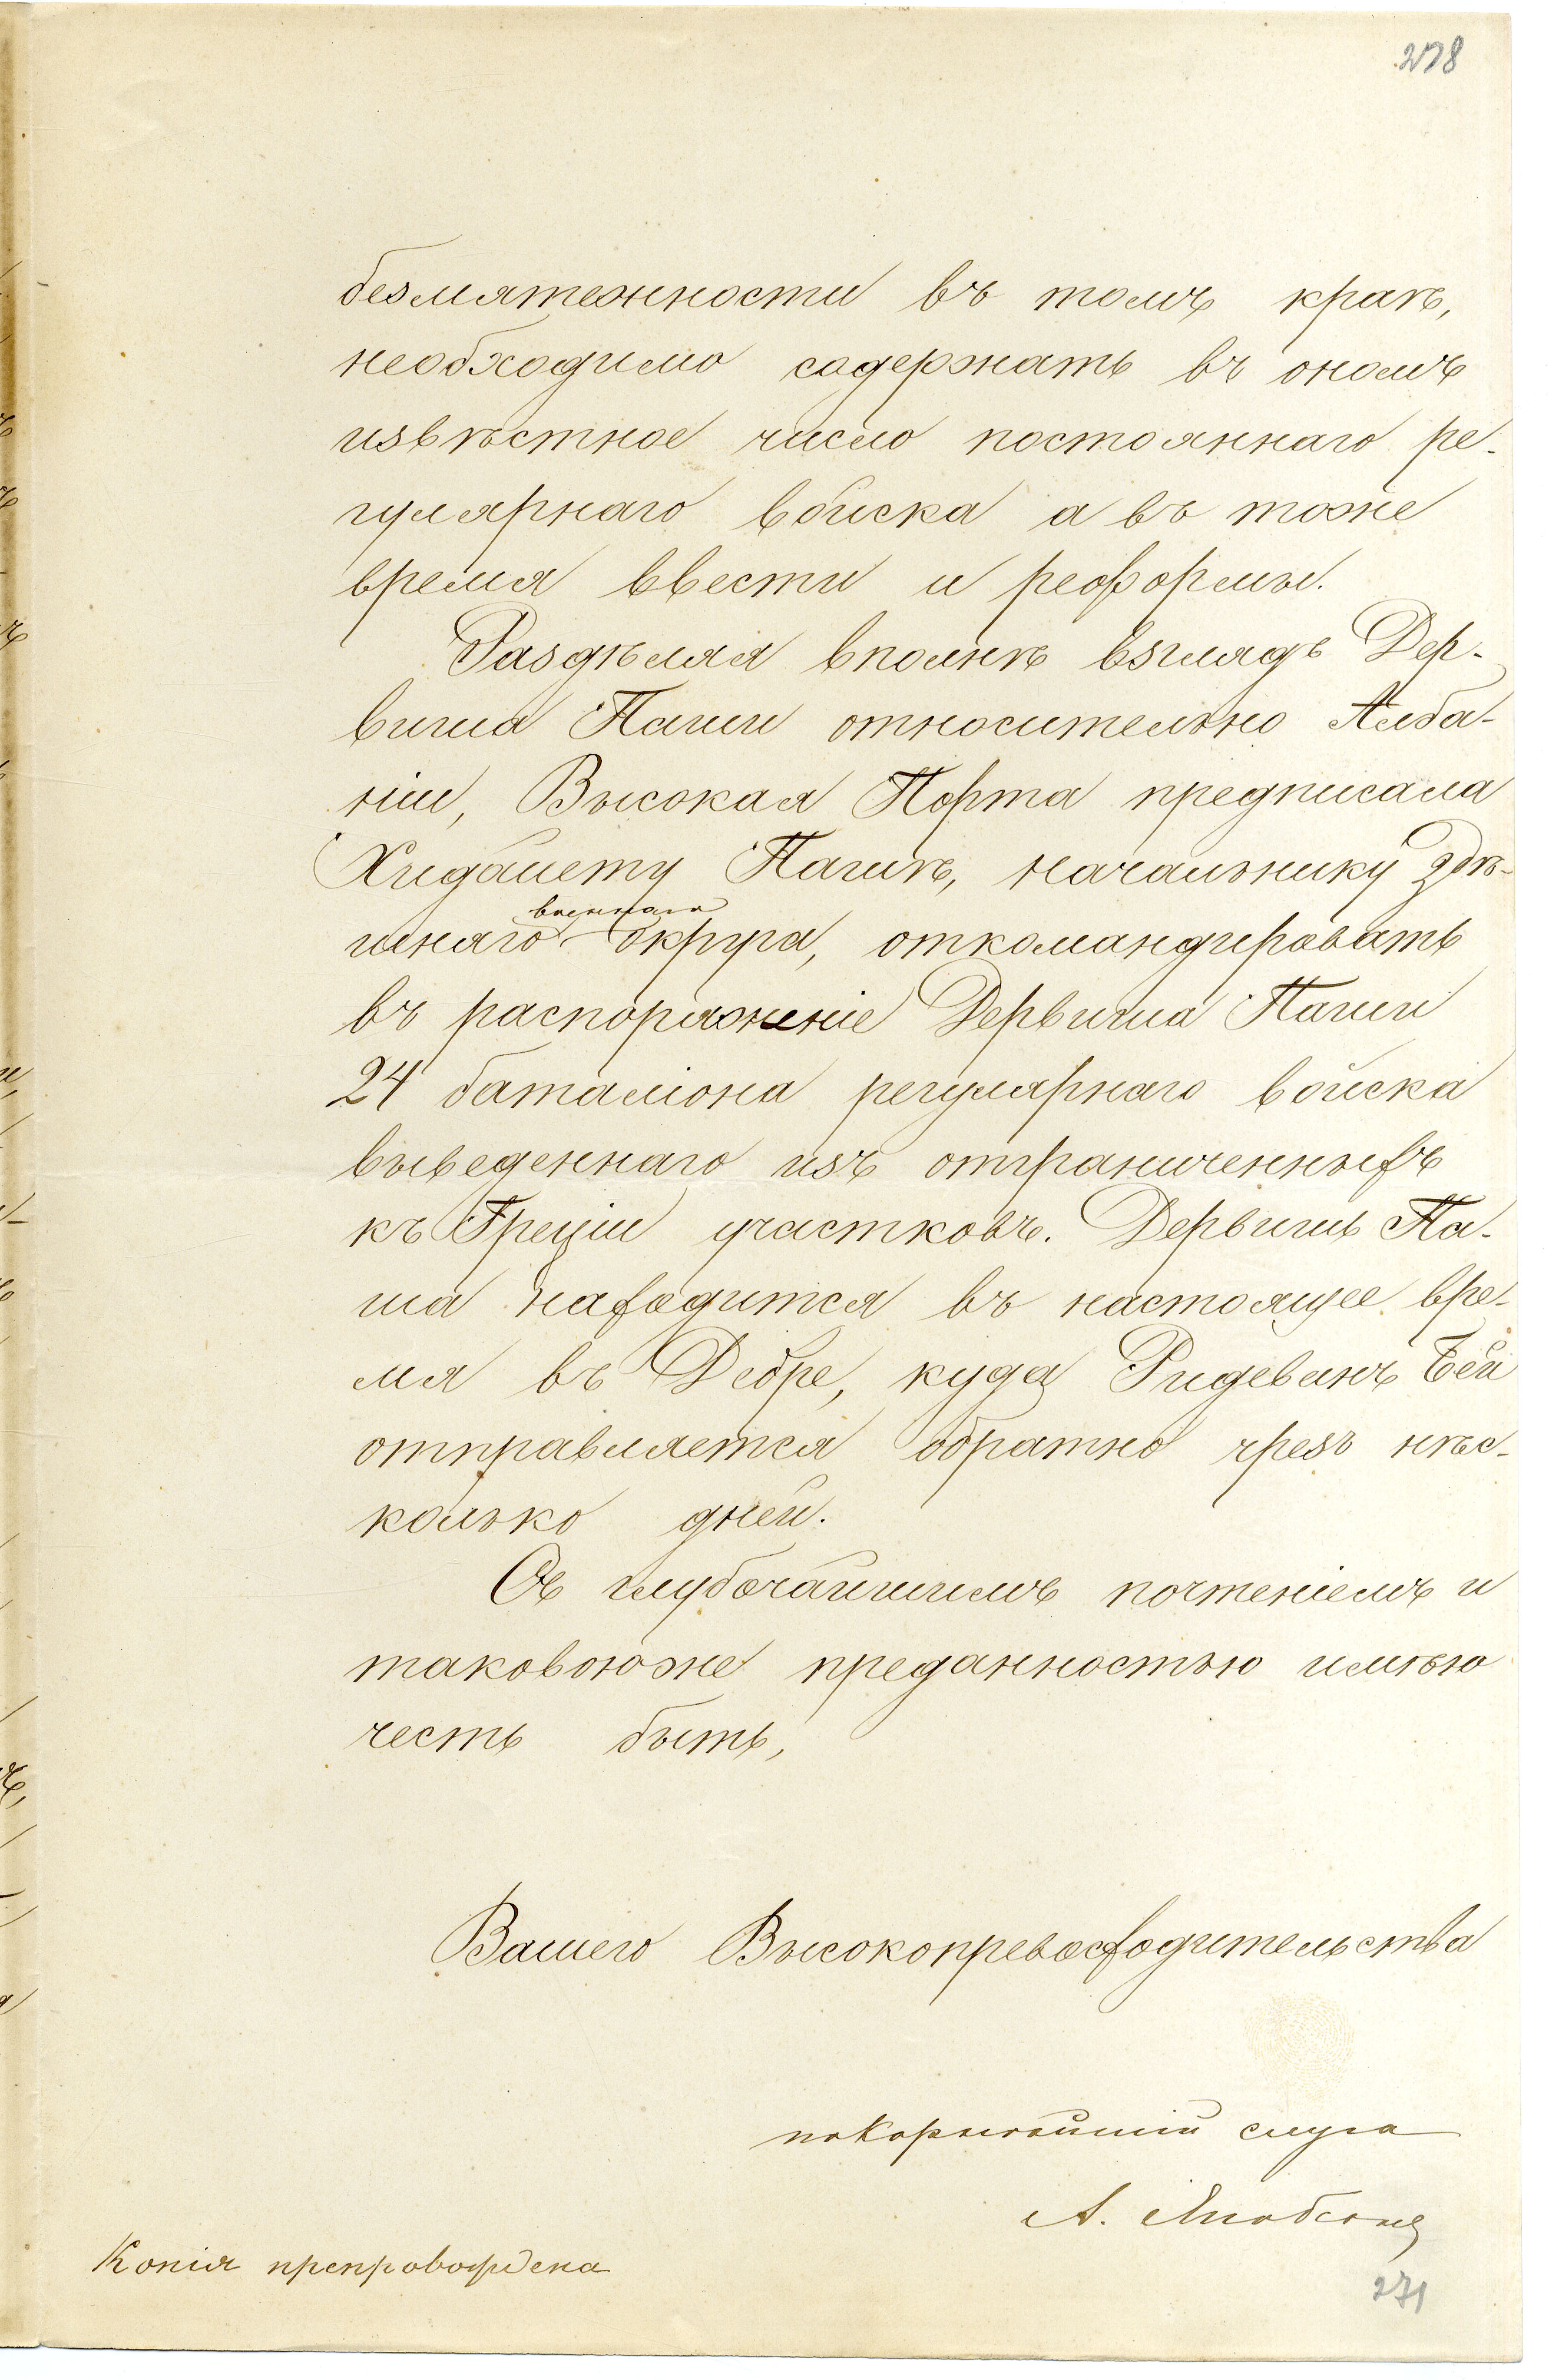 278
безмятежности въ томъ краѣ,
необходимо содержать въ ономъ
извѣстное число постояннаго ре-
гулярнаго войска а въ тоже
время ввести и реформы.
Раздѣляя вполнѣ взглядъ Дер-
виша Паши относительно Алба-
ніи, Высокая Порта предписала
Хидаиету Пашѣ, начальнику здѣ-
военнаго
шняго округа, откомандировать
въ распоряженіе Дервиша Паши
24 баталіона регулярнаго войска
выведеннаго изъ отграниченныхъ
къ Греціи участковъ. Дервишъ Па-
ша находится въ настоящее вре-
мя въ Дебре, куда Ридеванъ Бей
отправляется обратно чрезъ нѣс-
колько дней.
Съ глубочайшимъ почтеніемъ и
таковоюже преданностью имѣю
честь быть,
Вашего Высокопревосходительства
покорнѣйшій слуга
А. Якобсонъ
Копія препровождена
271